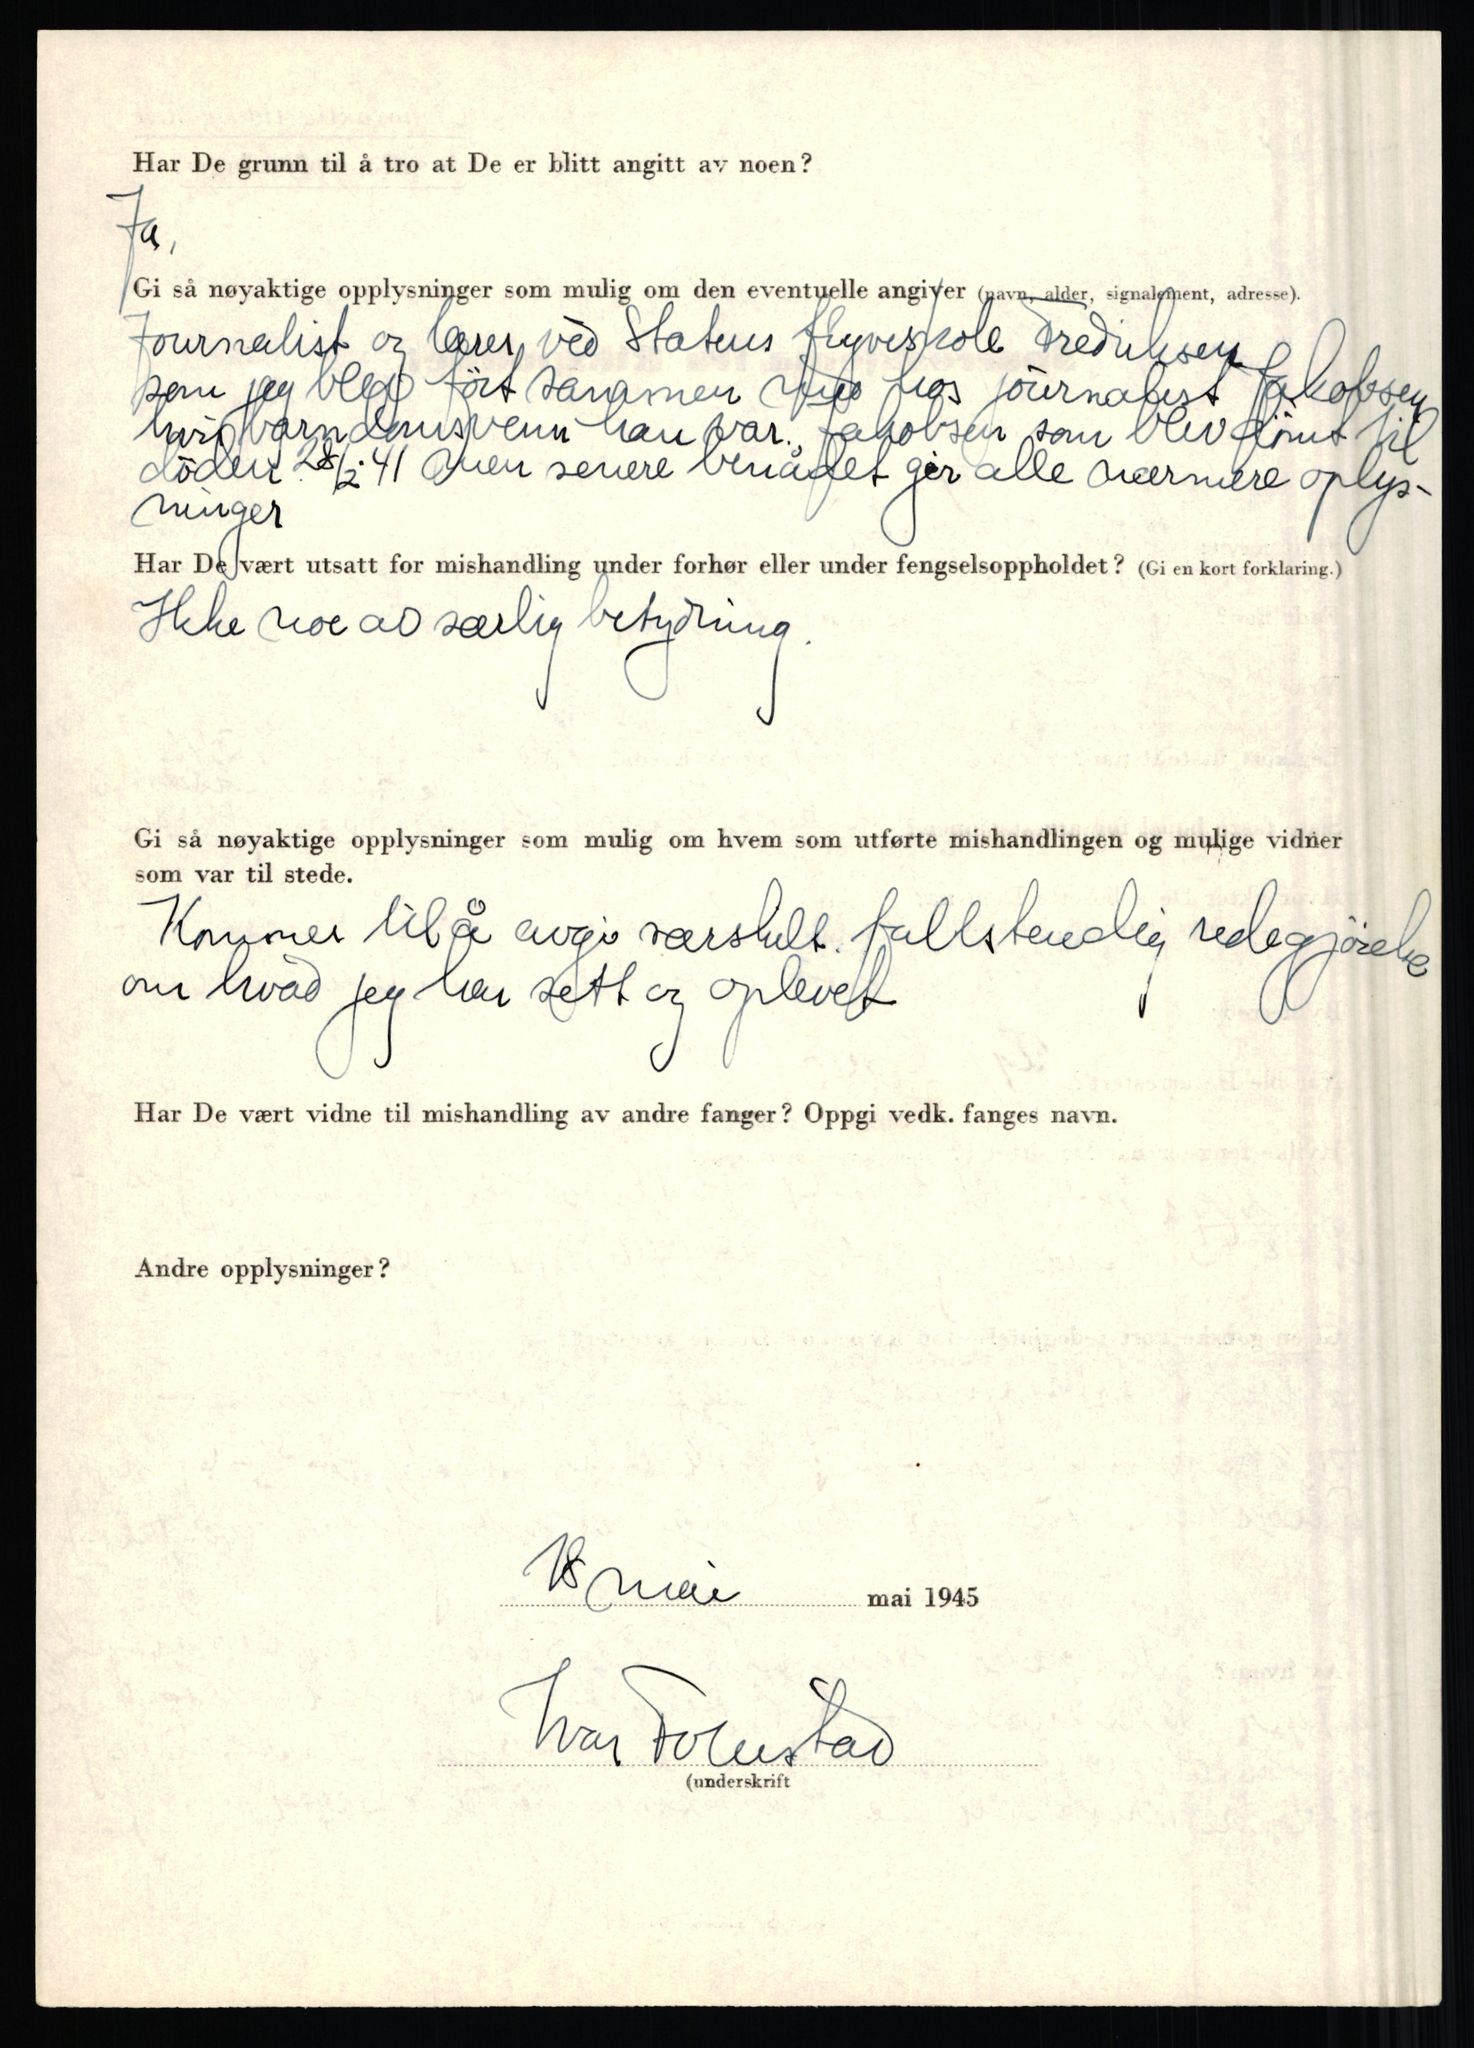 Har De grunn til å tro at De er blitt angitt av noen?
Ja,
Gi så nøyaktige opplysninger som mulig om den eventuelle angiver (navn, alder, signalement, adresse).
Journalist og lærer ved Statens flyveskole Fredriksen
som jeg blev ført sammen med hos journalist Jakobsen
hvis barndomsvenn han var. Jakobsen som blev dömt til
döden 28/2 41 men senere benådet gir alle nærmere oplys-
ninger
Har De vært utsatt for mishandling under forhør eller under fengselsoppholdet? (Gi en kort forklaring.)
Ikke noe av særlig betydning.
Gi så nøyaktige opplysninger som mulig om hvem som utførte mishandlingen og mulige vidner
som var til stede.
Kommer til å avgi særskilt fullstendig redegjörelse
om hvad jeg har sett og oplevet
Har De vært vidne til mishandling av andre fanger? Oppgi vedk. fanges navn.
Andre opplysninger?
18 mai mai 1945
Ivar
(underskrift